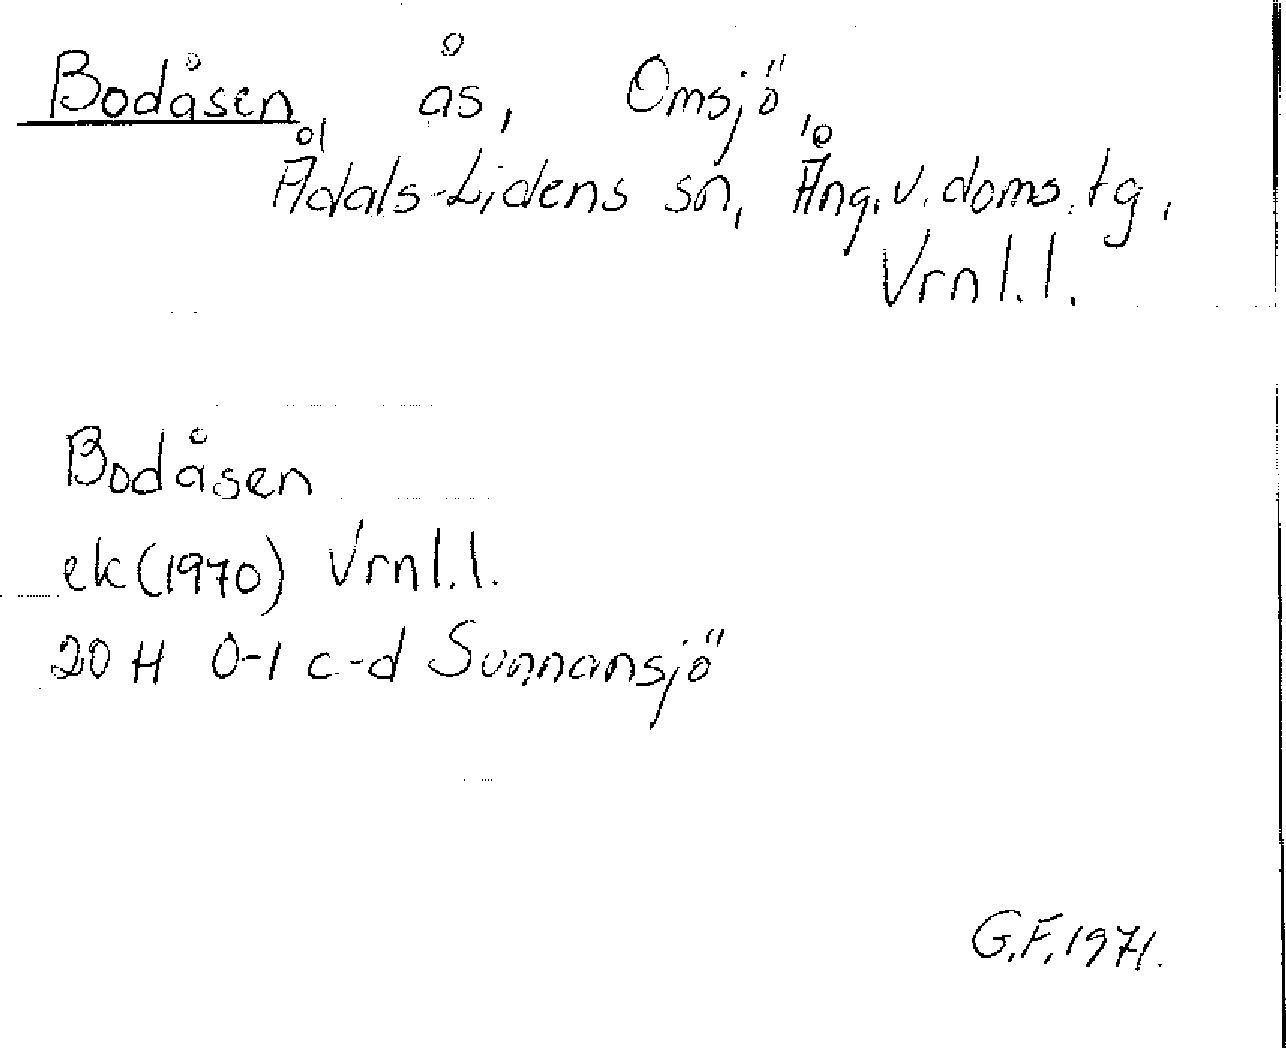 Bodåsen, ås, Omsjö,
Ådals-Lidens sn, Ång. v. doms. tg.
Vrnl. l.
Bodåsen
ek (1970) Vrnl. l.
20 H 0-1 c-d Sunnansjö
G.F. 1971.